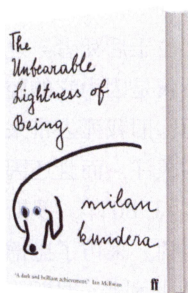 The
Unbearable
Lightness of
Being
milan
kundera
"A dark and brilliant achievement." Ian McEwan
ff